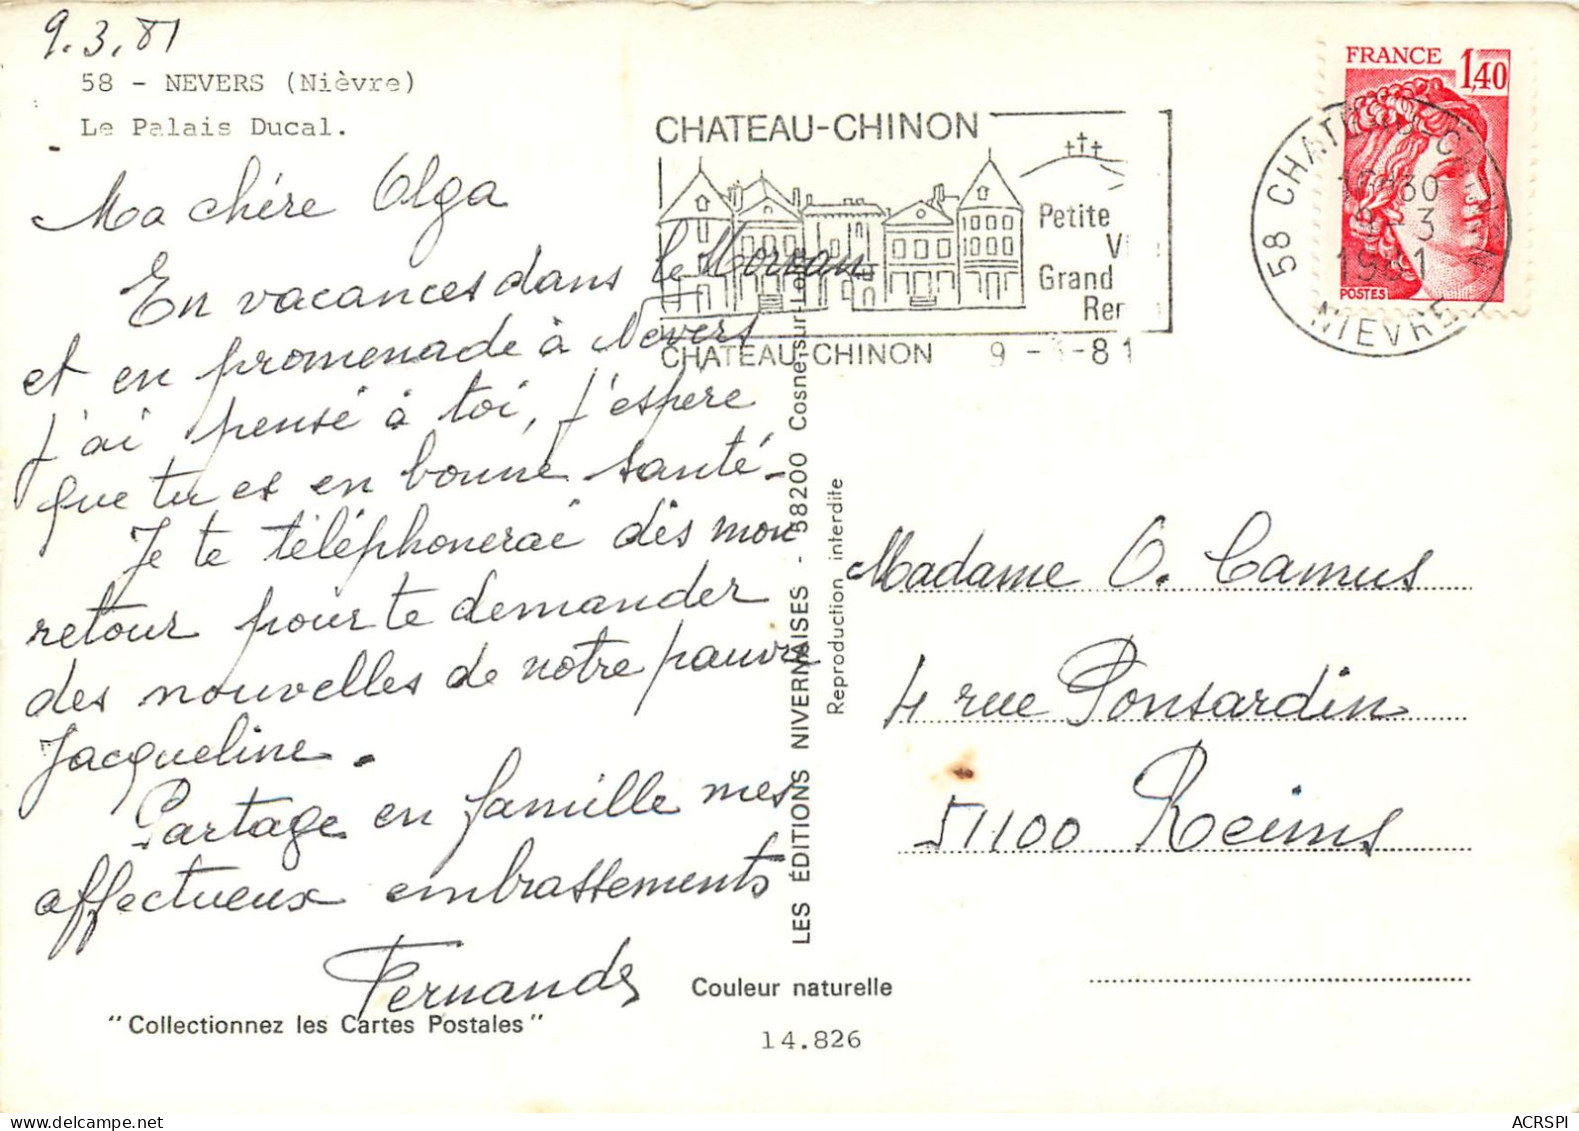 9.3.81
58 - NEVERS (Nièvre)
Le Palais Ducal.
Ma chére Olga
En vacances dans le Morvan
et en promenade à Nevers
j'ai pensé à toi, j'espère
que tu es en bonne santé-
Je te téléphonerai dès mon
retour pour te demander
des nouvelles de notre pauvre
Jacqueline.
Partage en famille mes
affectueux embrassements
Fernande
"Collectionnez les Cartes Postales"
Couleur naturelle
14.826
LES ÉDITIONS NIVERNAISES - 58200 Cosne-sur-Loire
Reproduction interdite
CHATEAU-CHINON
Petite
V
Grand
Ren
CHATEAU-CHINON 9 -3-81
FRANCE
1,40
POSTES
58 CHATEAU-CHINON
30
9-3
1981
NIEVRE
Madame O. Camus
4 rue Ponsardin
51100 Reims
ACRSPI